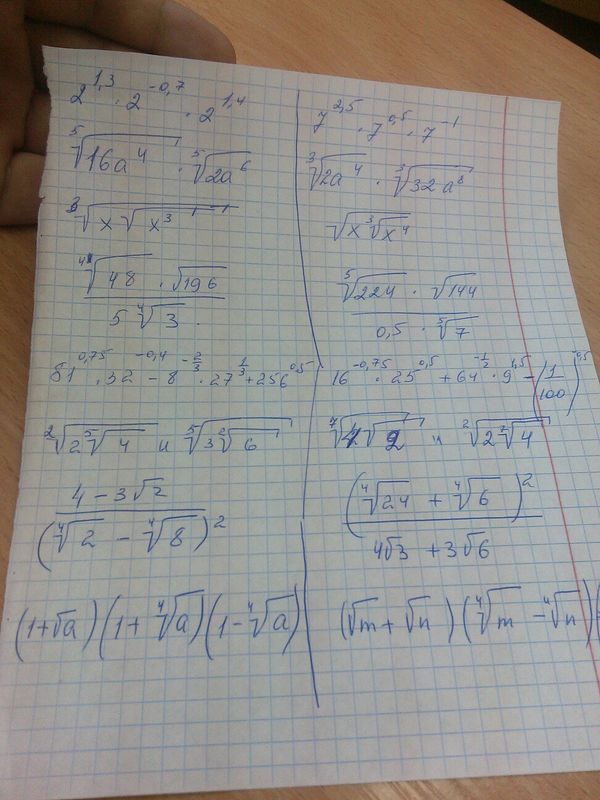 2^1,3 · 2^-0,7 · 2^1,4
⁵√(16a⁴) · ⁵√(2a⁶)
³√(x√(x³))
(⁴√48 · √196) / (5 ⁴√3)
б1^0,75 · 32^-0,4 - 8^-2/3 · 27^1/3 + 256^0,5
²√(2⁵√4) и ⁵√(3²√6)
(4 - 3√2) / (⁴√2 - ⁴√8)²
(1+√a)(1+⁴√a)(1-⁴√a)
7^2,5 · 7^0,5 · 7^-1
³√(2a⁴) · ³√(32a⁸)
√(x³√(x⁴))
(⁵√224 · √144) / (0,5 · ⁵√7)
16^-0,75 · 25^0,5 + 64^-1/2 · 9^1,5 - (1/100)^-0,5
⁷√(4√2) и ²√(2⁷√4)
(⁴√24 + ⁴√6)² / (4√3 + 3√6)
(√m + √n)(⁴√m - ⁴√n)(